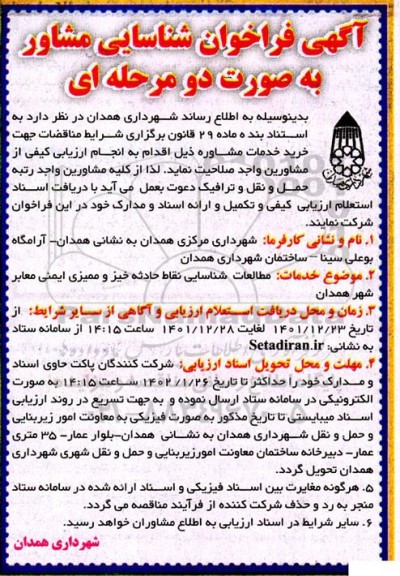 آگهی فراخوان شناسایی مشاور
به صورت دو مرحله ای
بدینوسیله به اطلاع رساند شهرداری همدان در نظر دارد به
استناد بند ه ماده ۲۹ قانون برگزاری شرایط مناقصات جهت
خرید خدمات مشاوره ذیل اقدام به انجام ارزیابی کیفی از
مشاورین واجد صلاحیت نماید. لذا از کلیه مشاورین واجد رتبه
حمل و نقل و ترافیک دعوت بعمل می آید با دریافت اسناد
استعلام ارزیابی کیفی و تکمیل و ارائه اسناد و مدارک خود در این فراخوان
شرکت نمایند.
۱. نام و نشانی کارفرما: شهرداری مرکزی همدان به نشانی همدان- آرامگاه
بوعلی سینا – ساختمان شهرداری همدان
۲. موضوع خدمات: مطالعات شناسایی نقاط حادثه خیز و ممیزی ایمنی معابر
شهر همدان
۳. زمان و محل دریافت استعلام ارزیابی و آگاهی از سایر شرایط: از
تاریخ ۱۴۰۱/۱۲/۲۳ لغایت ۱۴۰۱/۱۲/۲۸ ساعت ۱۴:۱۵ از سامانه ستاد
به نشانی: Setadiran.ir
۴. مهلت و محل تحویل اسناد ارزیابی: شرکت کنندگان پاکت حاوی اسناد
و مدارک خود را حداکثر تا تاریخ ۱۴۰۲/۱/۲۶ ساعت ۱۴:۱۵ به صورت
الکترونیکی در سامانه ستاد ارسال نموده و به جهت تسریع در روند ارزیابی
اسناد میبایستی تا تاریخ مذکور به صورت فیزیکی به معاونت امور زیربنایی
و حمل و نقل شهرداری همدان به نشانی همدان-بلوار عمار- ۳۵ متری
عمار- دبیرخانه ساختمان معاونت امورزیربنایی و حمل و نقل شهری شهرداری
همدان تحویل گردد.
۵. هرگونه مغایرت بین اسناد فیزیکی و اسناد ارائه شده در سامانه ستاد
منجر به رد و حذف شرکت کننده از فرآیند مناقصه می گردد.
۶. سایر شرایط در اسناد ارزیابی به اطلاع مشاوران خواهد رسید.
شهرداری همدان